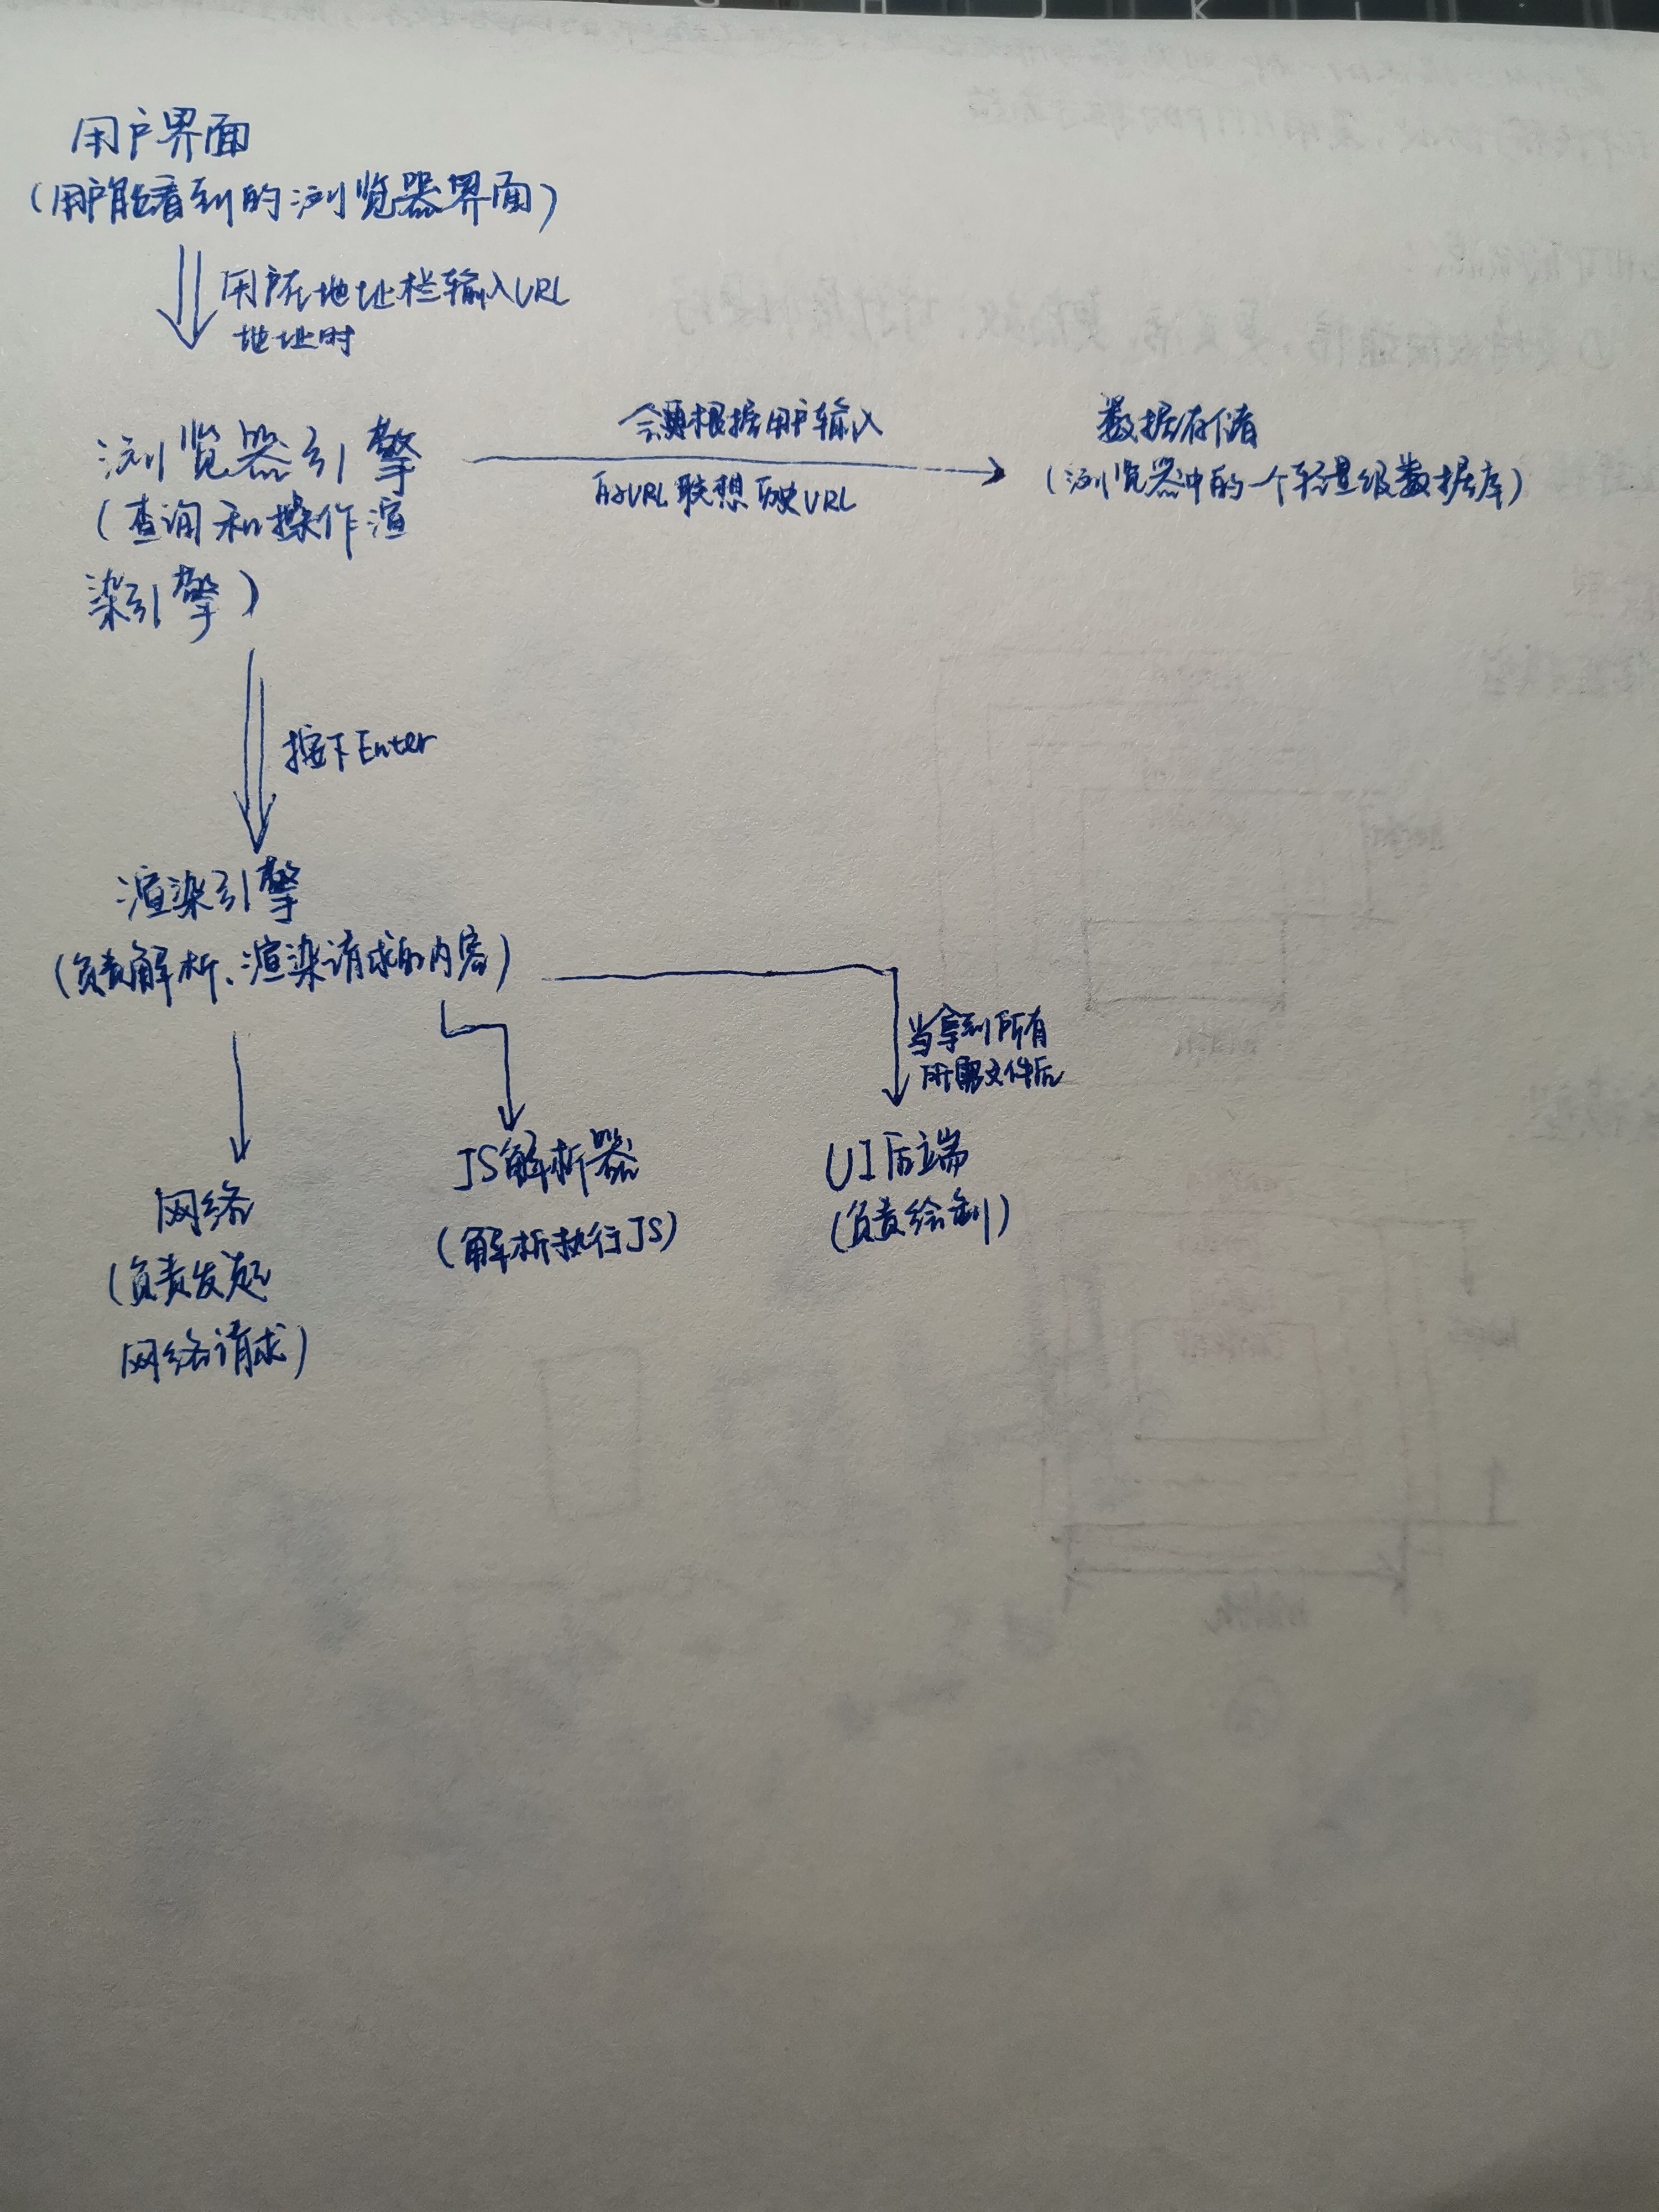 用户界面
(用户能看到的浏览器界面)
用户在地址栏输入URL
地址时
浏览器引擎
(查询和操作渲
染引擎)
会根据用户输入
的URL联想历史URL
数据存储
(浏览器中的一个轻量级数据库)
按下Enter
渲染引擎
(负责解析、渲染请求的内容)
当拿到所有
所需文件后
网络
(负责发起
网络请求)
JS解析器
(解析执行JS)
UI后端
(负责绘制)